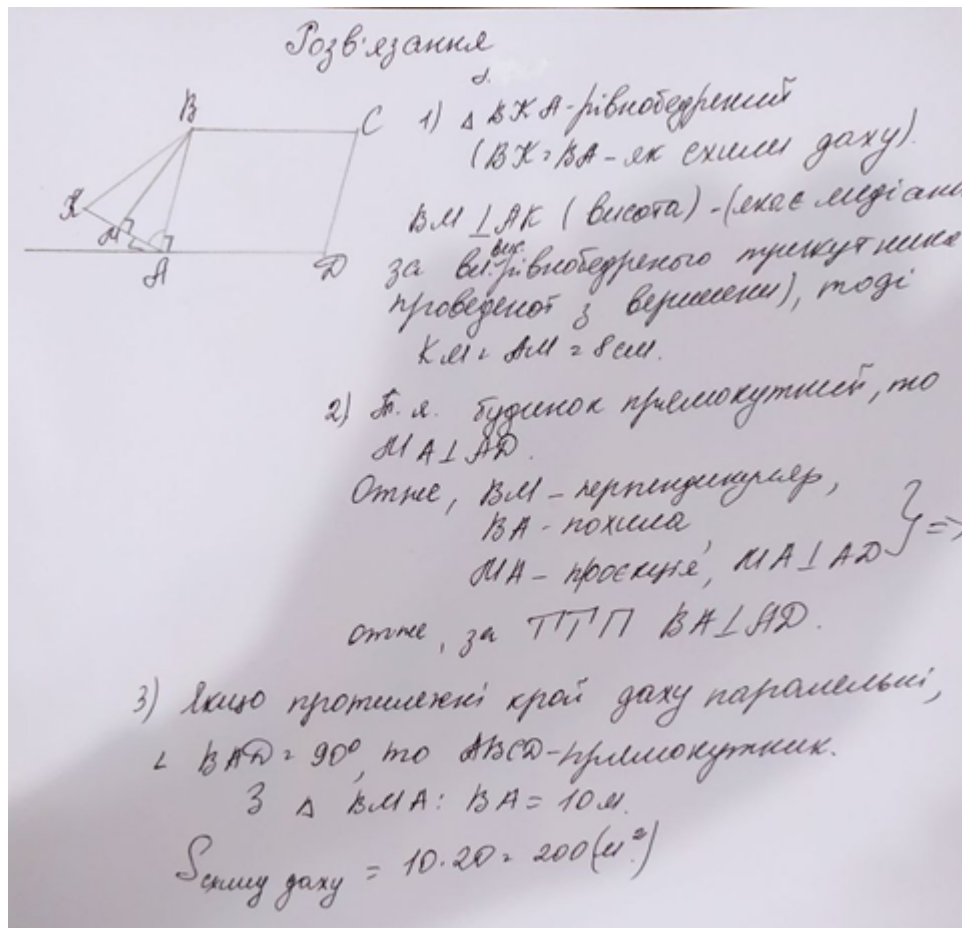 Розв'язання
B
C
K
M
A
D
1) △ BKA - рівнобедрений
(BK = BA - як схили даху).
BM ⊥ AK (висота) - (як і медіана
за вл. рівнобедреного трикутника
проведеної з вершини), тоді
KM = AM = 8 см.
2) Т. я. будинок прямокутний, то
MA ⊥ AD.
Отже, BM - перпендикуляр,
BA - похила,
MA - проєкція, MA ⊥ AD } =>
отже, за ТТП BA ⊥ AD.
3) Якщо протилежні краї даху паралельні,
∠ BAD = 90°, то ABCD - прямокутник.
З △ BMA: BA = 10 м.
S схилу даху = 10·20 = 200 (м²)